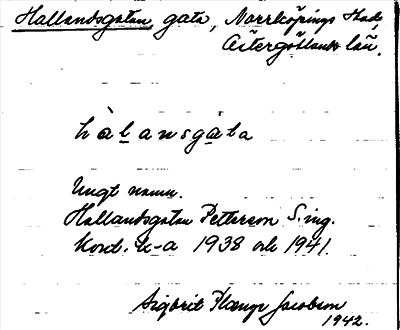 Hallandsgatan, gata, Norrköpings stad,
Östergötlands län.
hàlansgáta
Ungt namn.
Hallandsgatan Petterson S. ing.
Kond. k-a 1938 och 1941.
Sigbrit Plænge Jacobson
1942.